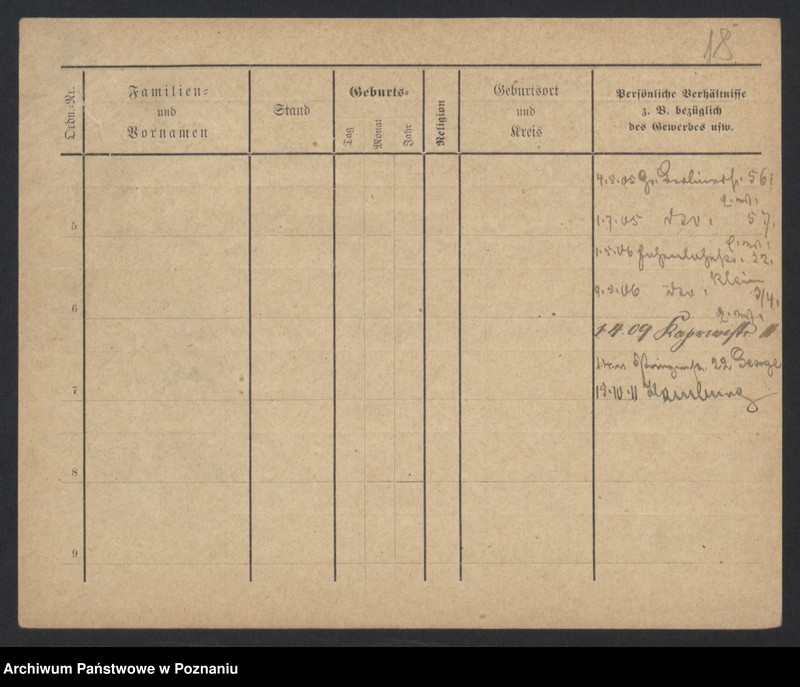 18
Ordn.-Nr.
Familien-
und
Vornamen
Stand
Geburts-
Tag
Monat
Jahr
Religion
Geburtsort
und
Kreis
Persönliche Verhältnisse
z. B. bezüglich
des Gewerbes usw.
4.5.05 Gr. Berlinerstr. 56
5
1.7.05 57.
1.5.06 22.
Klein
06 3/4.
6
1.4.09
22 George
7
15.10.11 Hamburg
8
9
Archiwum Państwowe w Poznaniu